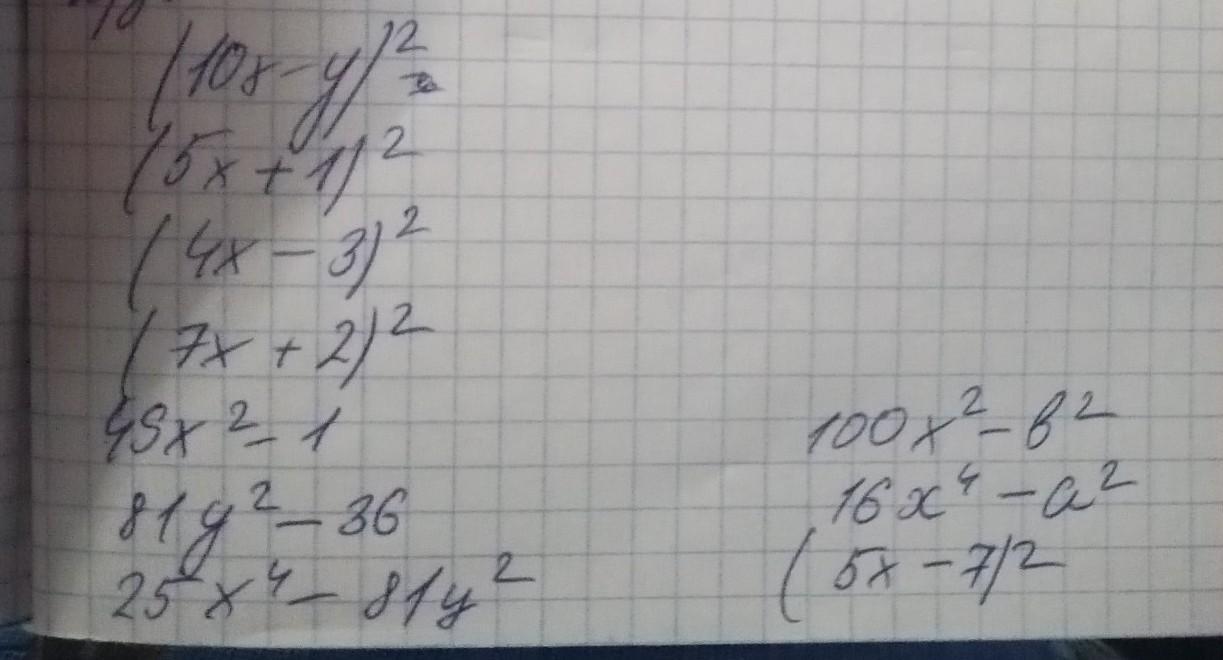 (10x-y)² =
(5x+1)²
(4x-3)²
(7x+2)²
49x²-1
81y²-36
25x⁴-81y²
100x²-b²
16x⁴-a²
(5x-7)²